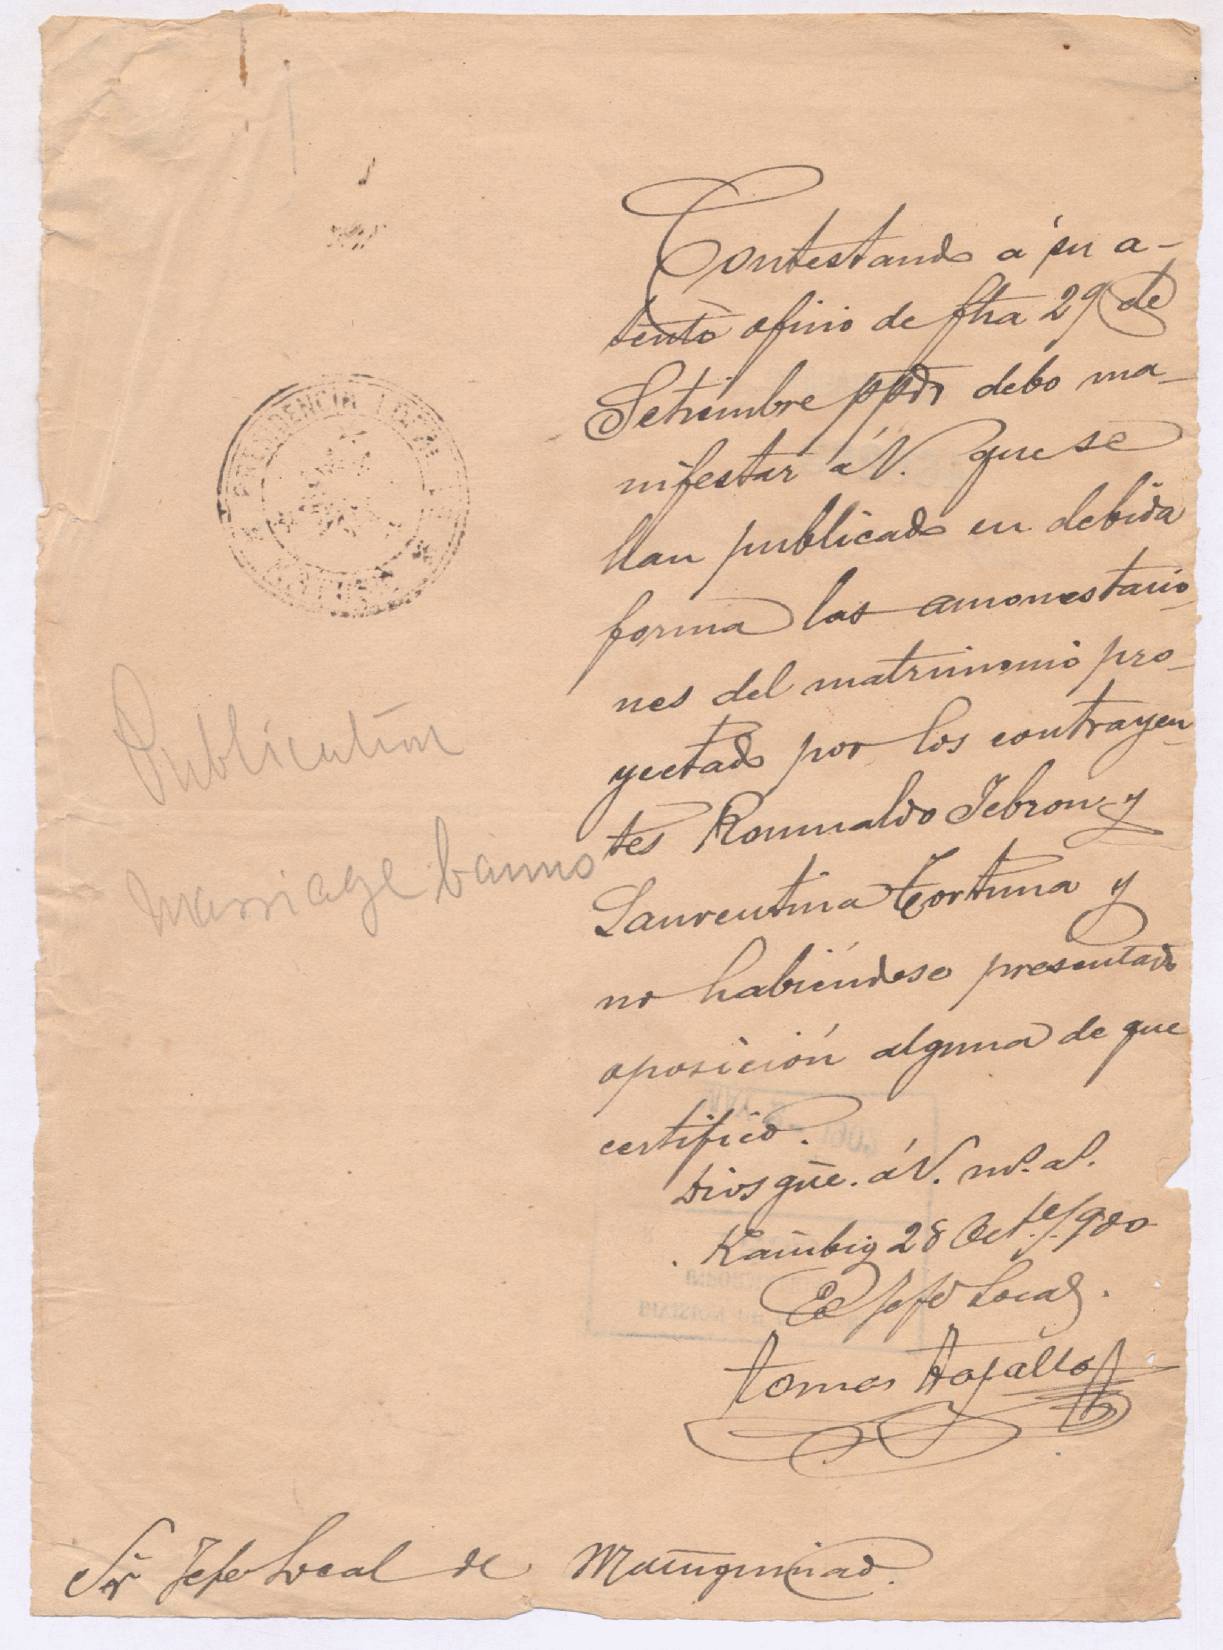 PRESIDENCIA LOCAL
Contestando á su a-
tento oficio de fha 29 de
Setiembre ppdo debo ma-
nifestar á V. que se
han publicado en debida
forma las amonestacio-
nes del matrimonio pro-
yectado por los contrayen-
tes Romualdo Febron y
Laurentina Fortuna y
no habiéndose presentado
oposición alguna de que
certifico.
Dios gũe. á V. m.s a.s
28 Oct.e/900
El Jefe Local.
Tomas
Sr Jefe Local de
Publication
marriage banns